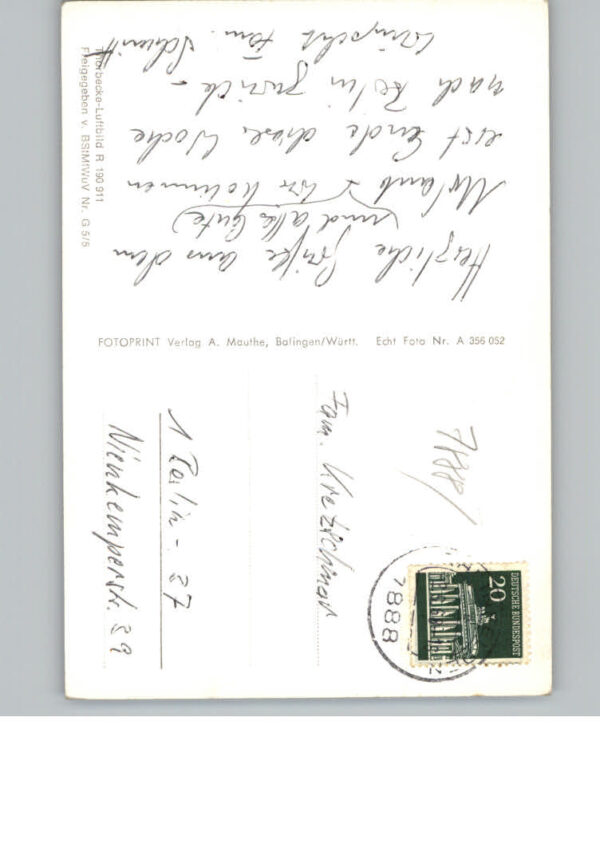 Herzliche Grüße aus dem
(und alles Gute)
Urlaub wir kommen
erst Ende dieser Woche
nach Berlin zurück –
wünscht Fam. Schmitt
Thorbecke-Luftbild R 190 911
Freigegeben v. BStMfWuV Nr. G 5/5
FOTOPRINT Verlag A. Mauthe, Balingen/Württ. Echt Foto Nr. A 356 052
7888
DEUTSCHE BUNDESPOST
20
7888
Fam. Kretzschmar
1 Berlin - 37
Nienkemperstr. 39